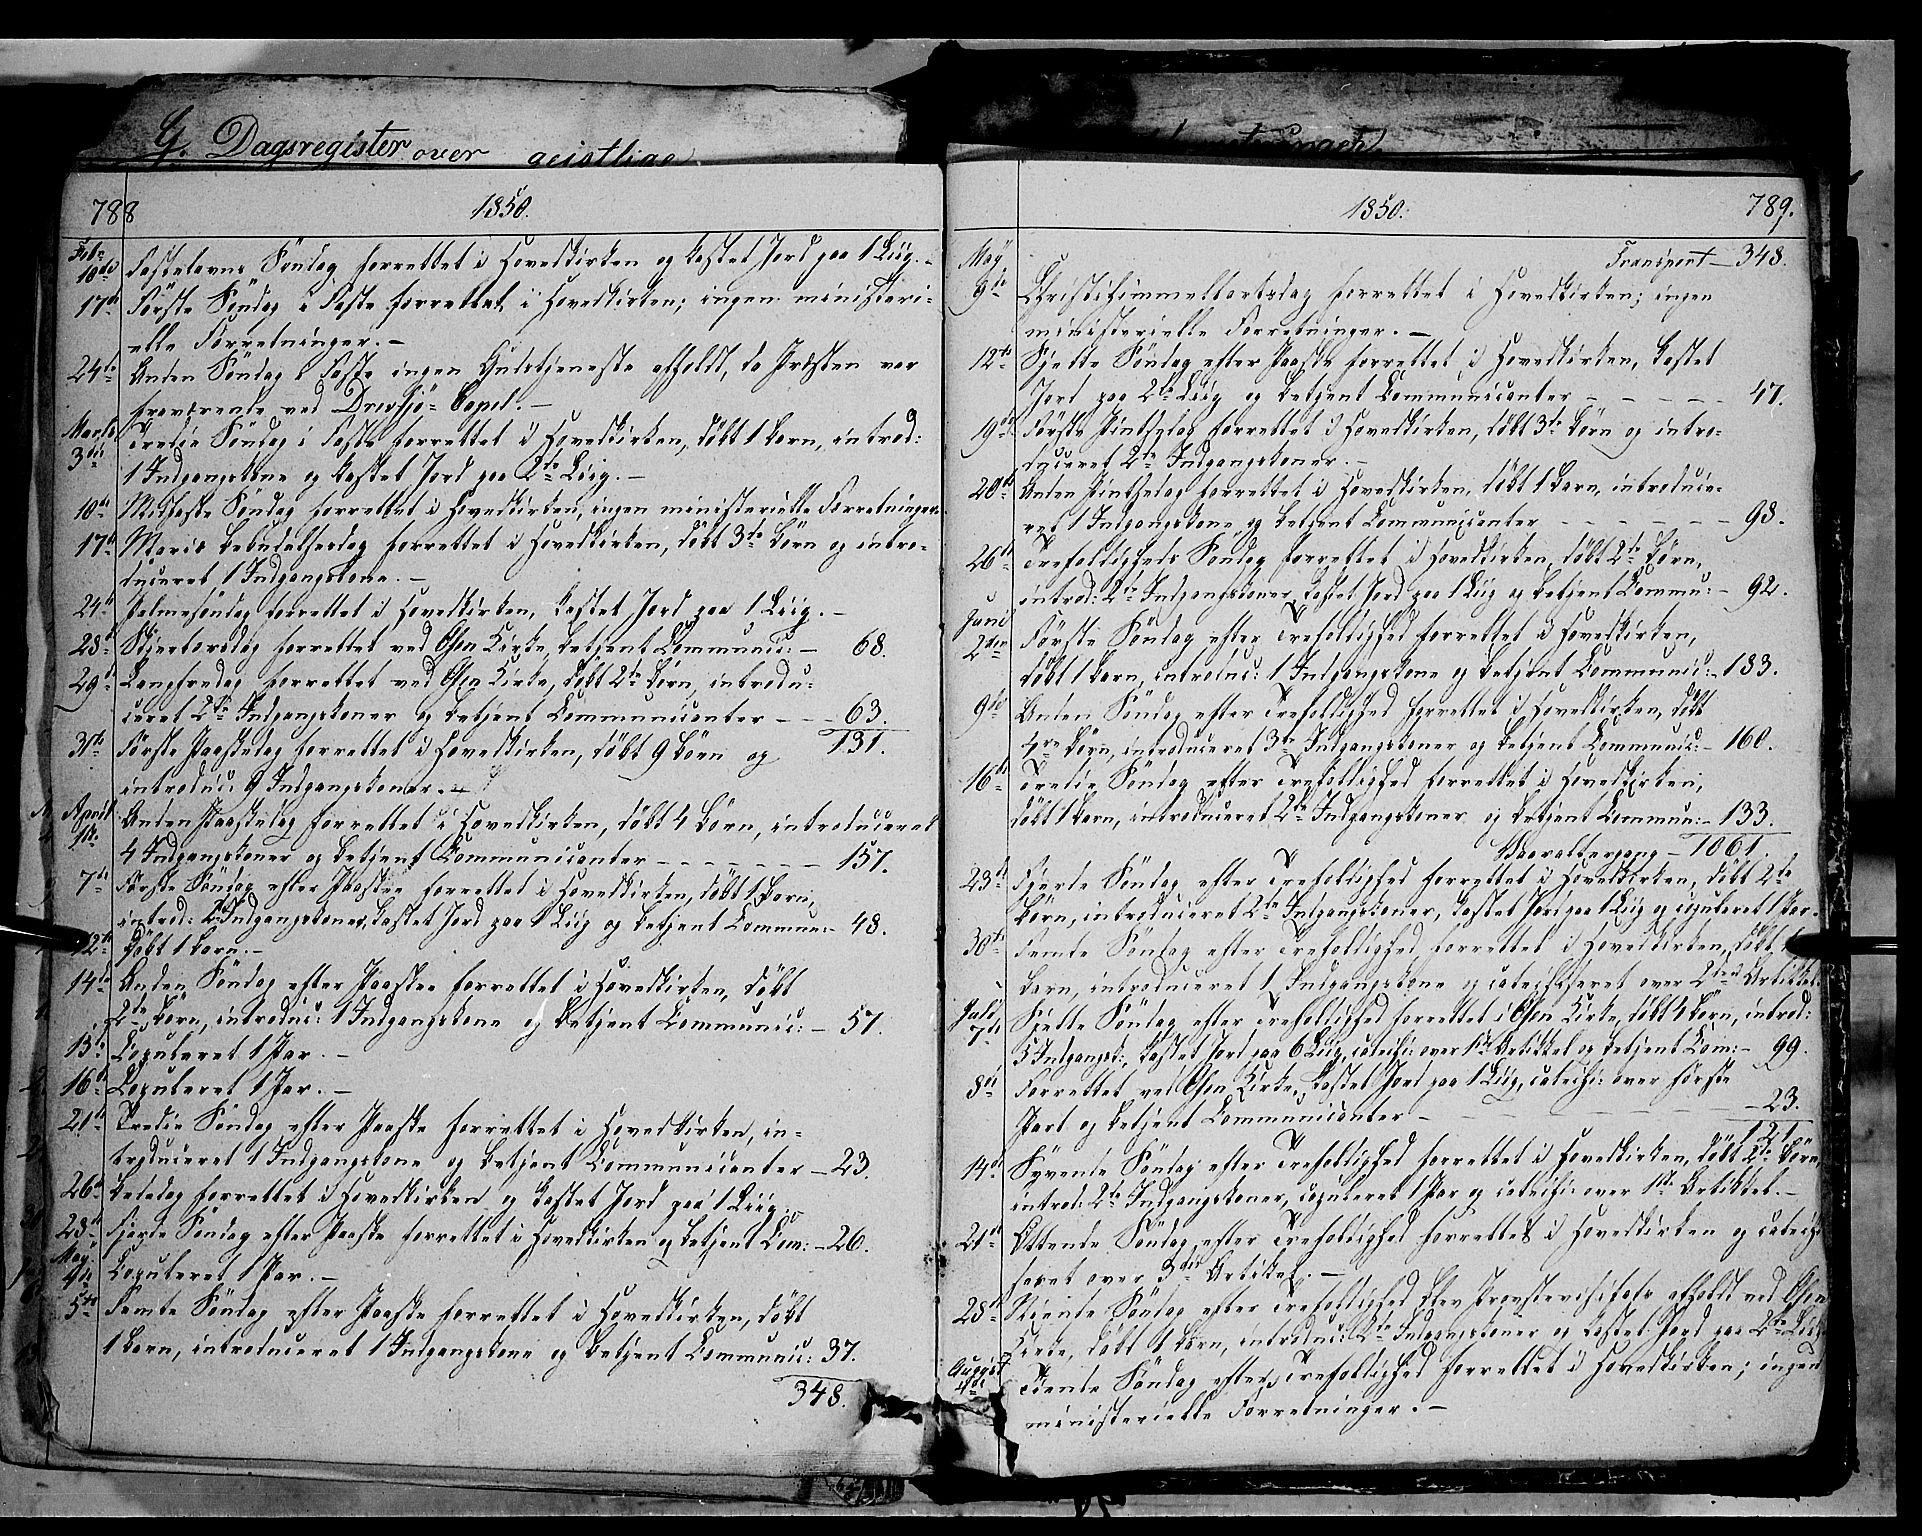 G. Dagsregister over geistlige
788
1850.
Feb. 10de Fastelavns Söndag forrettet i Hovedkirken og kastet Jord paa 1 Liig.-
17de Förste Söndag i Faste forrettet i Hovedkirken; ingen ministeri-
elle Forretninger.-
24de Anden Söndag i Faste ingen Gudstjeneste afholdt, da Præsten var
fraværende ved Drevsjö-Capel.-
Marts 3die Tredie Söndag i Faste forrettet i Hovedkirken, döbt 1 Barn, introd:
1 Indgangskone og kastet Jord paa 2de Liig.-
10de Midfaste Söndag forrettet i Hovedkirken, ingen ministerielle Forretninger.
17de Mariæ Bebudelsesdag forrettet i Hovedkirken, döbt 3de Börn og intro-
duceret 1 Indgangskone.-
24de Palmesöndag forrettet i Hovedkirken, kastet Jord paa 1 Liig.-
28de Skjertorsdag forrettet ved Osen Kirke, betjent Communic: - 68.
29de Langfredag forrettet ved Osen Kirke, döbt 2de Börn, introdu-
ceret 2de Indgangskoner og betjent Communicanter - - - 63.
131.
31te Förste Paaskedag forrettet i Hovedkirken, döbt 9 Börn og
introduc: 9 Indgangskoner.-
April 1ste Anden Paaskedag forrettet i Hovedkirken, döbt 4 Börn, introduceret
4 Indgangskoner og betjent Communicanter - - - - - - - 157.
7de Förste Söndag efter Paaske forrettet i Hovedkirken, döbt 1 Barn,
introd: 2 Indgangskoner, kastet Jord paa 1 Liig og betjent Commun: - 48.
12te Döbt 1 Barn.-
14de Anden Söndag efter Paaske forrettet i Hovedkirken, döbt
2de Börn, introduc: 1 Indgangskone og betjent Communic: - 57.
15de Copuleret 1 Par.-
16de Copuleret 1 Par.-
21de Tredie Söndag efter Paaske forrettet i Hovedkirken, in-
troduceret 1 Indgangskone og betjent Communicanter - 23.
26de Bededag forrettet i Hovedkirken og kastet Jord paa 1 Liig.
28de Fjerde Söndag efter Paaske forrettet i Hovedkirken og betjent Com: - 26.
May 4de Copuleret 1 Par.-
5te Femte Söndag efter Paaske forrettet i Hovedkirken, döbt
1 Barn, introduceret 1 Indgangskone og betjent Communic: 37.
348.
1850.
789.
Transport - 348.
May 9de Christi Himmelfartsdag forrettet i Hovedkirken; ingen
ministerielle Forretninger.-
12te Sjette Söndag efter Paaske forrettet i Hovedkirken, kastet
Jord paa 2de Liig og betjent Communicanter - - - - - 47.
19de Förste Pintsedag forrettet i Hovedkirken, döbt 3de Börn og intro-
duceret 2de Indgangskoner.-
20de Anden Pintsedag forrettet i Hovedkirken, döbt 1 Barn, introduce-
ret 1 Indgangskone og betjent Communicanter - - - - - - - 98.
26de Trefoldigheds Söndag forrettet i Hovedkirken, döbt 2de Börn,
introd: 2de Indgangskoner, kastet Jord paa 1 Liig og betjent Commu: - 92.
Juni 2den Förste Söndag efter Trefoldighed forrettet i Hovedkirken,
döbt 1 Barn, introduc: 1 Indgangskone og betjent Communic: - 183.
9de Anden Söndag efter Trefoldighed forrettet i Hovedkirken, döbt
4re Börn, introduceret 3de Indgangskoner og betjent Communic: - 160.
16de Tredie Söndag efter Trefoldighed forrettet i Hovedkirken,
döbt 1 Barn, introduceret 2de Indgangskoner og betjent Commun: - 133.
Vaaraltergang - 1061.
23de Fjerde Söndag efter Trefoldighed forrettet i Hovedkirken, döbt 2de
Börn, introduceret 2de Indgangskoner, kastet Jord paa 1 Liig og copuleret 1 Par.
30te Femte Söndag efter Trefoldighed forrettet i Hovedkirken, döbt 1
Barn, introduceret 1 Indgangskone og catechiseret over 2den Artikkel.
Juli 7de Sjette Söndag efter Trefoldighed forrettet i Osen Kirke, döbt 4 Börn, introd:
5 Indgangsk:, kastet Jord paa 6 Liig, catechi: over 1ste Artikkel og betjent Com: - 99.
8de Forrettet ved Osen Kirke, kastet Jord paa 1 Liig, catechi: over förste
Part og betjent Communicanter - - - - - 23.
121.
14de Syvende Söndag efter Trefoldighed forrettet i Hovedkirken, döbt 2de Börn,
introd: 2de Indgangskoner, copuleret 1 Par og catechi: over 1ste Artikkel.-
21de Ottende Söndag efter Trefoldighed forrettet i Hovedkirken og catechi-
seret over 3die Artikel.-
28de Niende Söndag efter Trefoldighed blev Provstevisitats afholdt ved Osen
Kirke, döbt 1 Barn, introduc: 2de Indgangskoner og kastet Jord paa 2de Liig.
August 4de Tiende Söndag efter Trefoldighed forrettet i Hovedkirken; ingen
ministerielle Forretninger.-